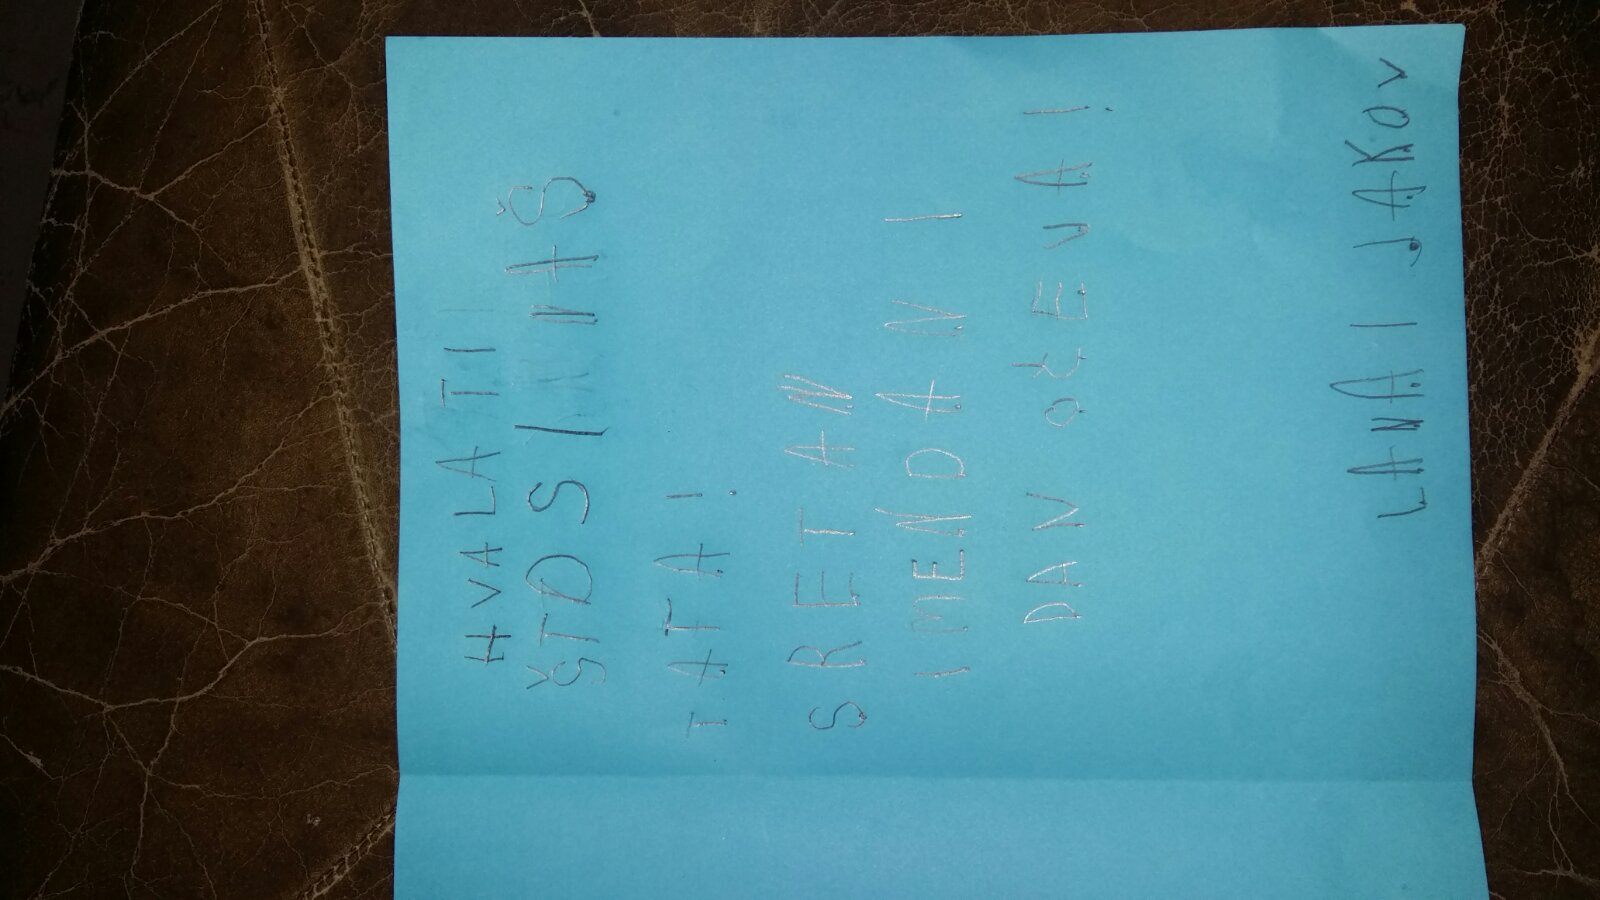 HVALA TI
ŠTD SI NAŠ
TATA!
SRETAN
IMENDAN I
DAN OČEVA!
LANA I JAKOV